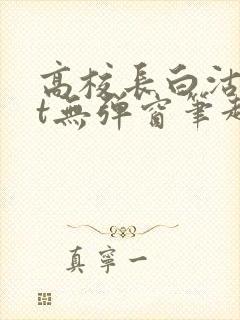 高校長白沽
t無彈窗筆趣
真寧一